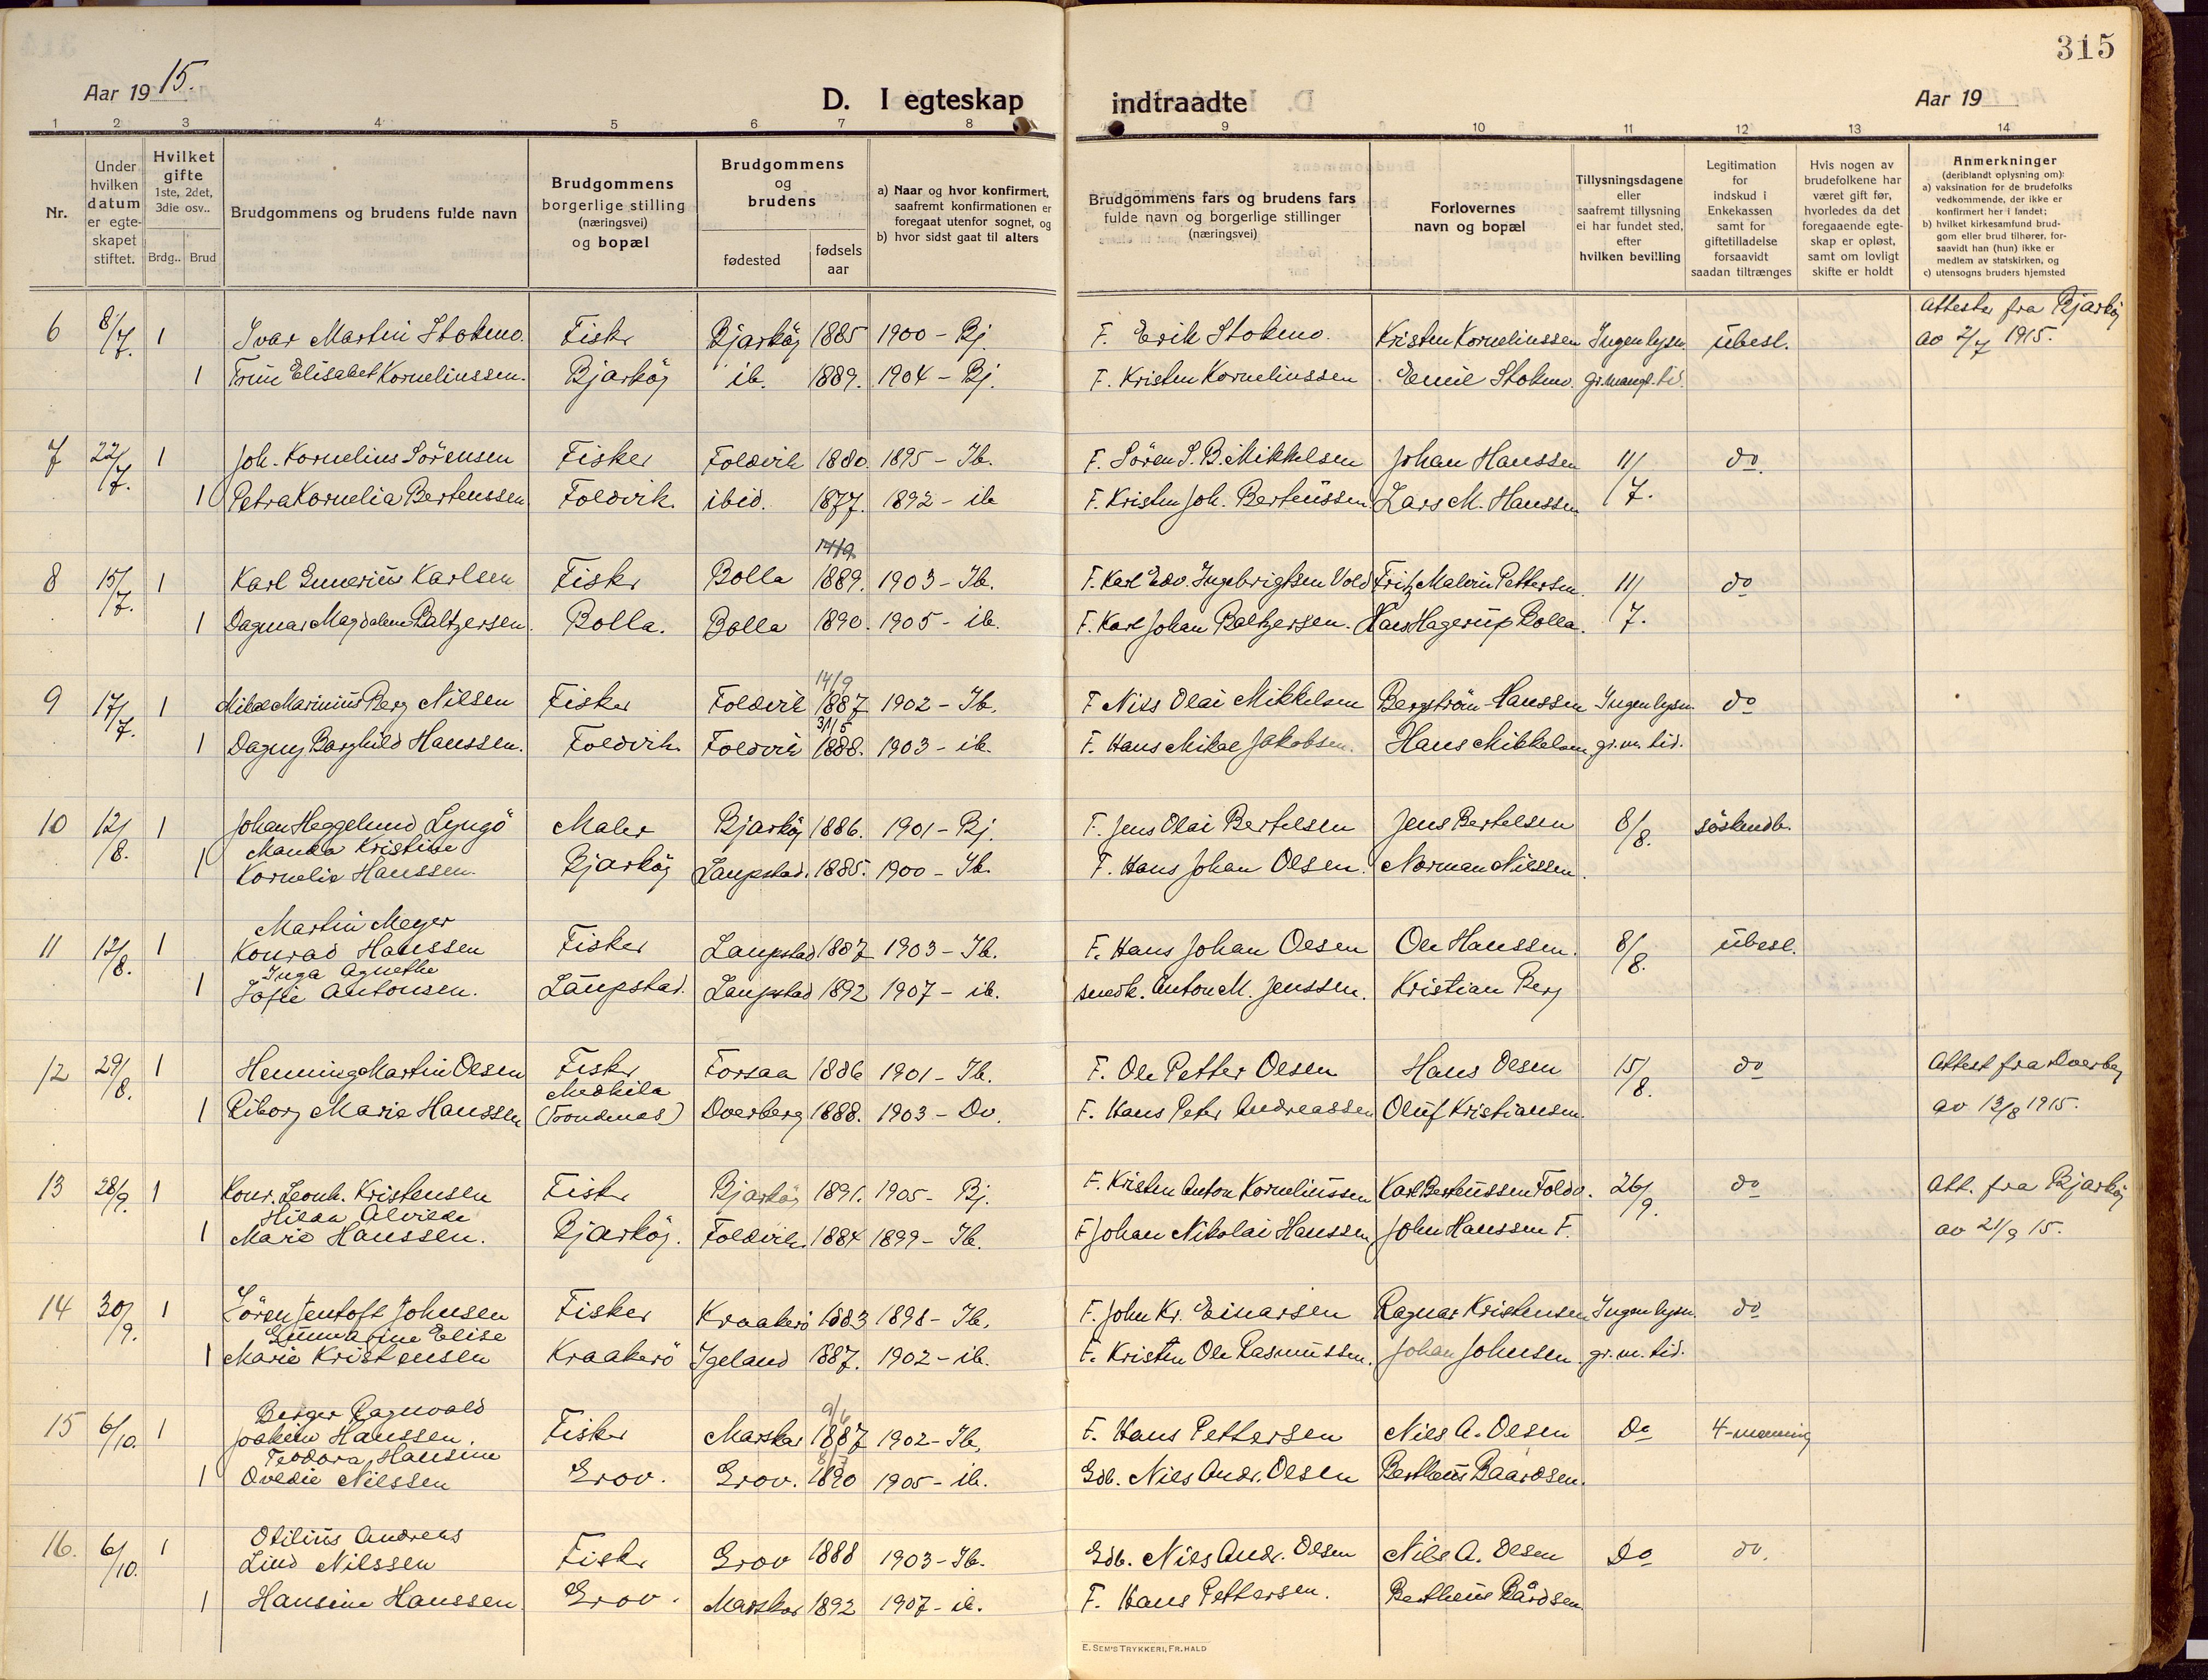 315
Aar 1915.
D. I egteskap indtraadte
Aar 19
1 2 3 4 5 6 7 8 9 10 11 12 13 14
Nr.
Under hvilken datum er egte-skapet stiftet.
Hvilket gifte 1ste, 2det, 3die osv..
Brdg.. Brud
Brudgommens og brudens fulde navn
Brudgommens borgerlige stilling (næringsvei) og bopæl
Brudgommens og brudens
fødested
fødsels aar
a) Naar og hvor konfirmert, saafremt konfirmationen er foregaat utenfor sognet, og
b) hvor sidst gaat til alters
Brudgommens fars og brudens fars fulde navn og borgerlige stillinger (næringsvei)
Forlovernes navn og bopæl
Tillysningsdagene eller saafremt tillysning ei har fundet sted, efter hvilken bevilling
Legitimation for indskud i Enkekassen samt for giftetilladelse forsaavidt saadan tiltrænges
Hvis nogen av brudefolkene har været gift før, hvorledes da det foregaaende egte-skap er opløst, samt om lovligt skifte er holdt
Anmerkninger (deriblandt oplysning om):
a) vaksination for de brudefolks vedkommende, der ikke er konfirmert her i landet;
b) hvilket kirkesamfund brud-gom eller brud tilhører, for-saavidt han (hun) ikke er medlem av statskirken, og
c) utensogns bruders hjemsted
6 8/7. 1 Ivar Martin Stokmo. Fisker Bjarköy 1885 1900 - Bj. F. Erik Stokmo. Kristen Korneliussen Ingen lysn. übesl. Attester fra Bjarköy
1 Elisabet Korneliussen. Bjarköy ib. 1889. 1904 - Bj. F. Kristen Korneliussen Emil Stokmo. gr. mangl. tid. av 2/7 1915.
7 22/7. 1 Joh. Kornelius Sörensen Fisker Foldvik 1880. 1895 - Ib. F. Sören S. B. Mikkelsen Johan Hanssen 11/7. do.
1 Petra Kornelia Berteussen Foldvik. ibid. 1877. 1892 - ib F. Kristen Joh. Berteussen. Lars M. Hanssen
14/9
8 15/7. 1 Karl Emerius Karlsen Fisker Bolla 1889. 1903 - Ib. F. Karl Edv. Ingebrigtsen Vold Fritz Malvin Pettersen. 11/7. do
1 Dagmar Magdalene Baltzersen. Bolla. Bolla 1890. 1905 - ib. F. Karl Johan Baltzersen. Hans Hagerup Rolla.
14/9
9 17/7. 1 Mikal Marinius Berg Nilsen Fisker Foldvik 1887 1902 - Ib. F Nils Olai Mikkelsen Bergström Hanssen Ingen lysn. do
31/5
1 Dagny Borghild Hanssen. Foldvik. Foldvik 1888. 1903 - ib. F. Hans Mikal Jakobsen. Hans Mikkelsen gr. m. tid.
10 12/8. 1 Johan Heggelund Lyngö Maler Bjarköy 1886. 1901 - Bj. F. Jens Olai Bertelsen Jens Bertelsen 8/8. söskendb.
Manda Kristine
1 Kornelia Hanssen. Bjarköy Laupstad. 1885. 1900 - Ib. F. Hans Johan Olsen. Norman Nilssen.
Martin Meyer
11 12/8. 1 Konrad Hanssen Fisker Laupstad 1887 1903 - Ib. F. Hans Johan Olsen Ole Hanssen. 8/8. übesl.
Inga Agnethe
1 Jofie Antonsen. Laupstad. Laupstad 1892 1907 - ib. smedk. Anton M. Jenssen. Kristian Berg
12 29/8. 1 Henning Martin Olsen Fisker Forsaa 1886 1901 - Ib. F. Ole Petter Olsen Hans Olsen 15/8. do Attest fra Dverberg
Medkila
1 Riborg Marie Hanssen (Trondenes) Dverberg 1888. 1903 - Dv. F. Hans Peter Andreassen Oluf Kristiansen. av 13/8 1915.
13 28/9. 1 Konr. Leonh. Kristensen Fisker Bjarköy 1891. 1905 - Bj. F. Kristen Anton Korneliussen Karl Berteussen Foldv. 26/9. do Att. fra Bjarköy
Hilda Alvilde
1 Marie Hanssen. Bjarköy. Foldvik. 1884 1899 - Ib. F Johan Nikolai Hanssen John Hanssen F. av 21/9 15.
14 30/9. 1 Sören Jentoft Johnsen Fisker Kraakerö 1883 1898 - Ib. F. John Kr. Einarsen Ragnar Kristensen Ingen lysn. do
Elise
1 Marie Kristensen Kraakerö Igeland 1887. 1902 - ib. F. Kristen Ole Rasmussen. Johan Johnsen. gr. m. tid.
Berger Ragnvald 9/6
15 6/10. 1 Joakim Hanssen. Fisker Marskar 1887 1902 - Ib. F. Hans Pettersen Nils A. Olsen Do 4-menning
Teodora Hansine
1 Ovedie Nilssen Grov. Grov. 1890 1905 - ib. Gdb. Nils Andr. Olsen Bertheus Baardsen.
Otilius Andreas
16. 6/10. 1 Lind Nilssen Fisker Grov 1888 1903 - Ib. Gdb. Nils Andr. Olsen Nils A. Olsen Do do.
1 Hansine Hanssen Grov. Marskar 1892 1907 - ib. F. Hans Pettersen. Bertheus Bårdsen
E. SEM'S TRYKKERI, FR.HALD